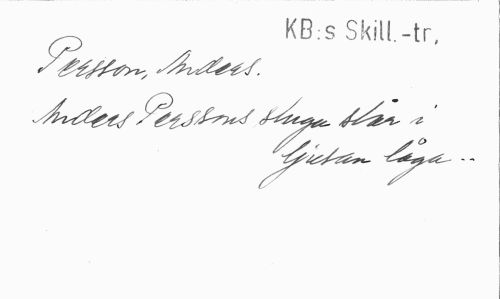 KB:s Skill.-tr,
Persson, Anders.
Anders Perssons stuga står i
ljusan låga --